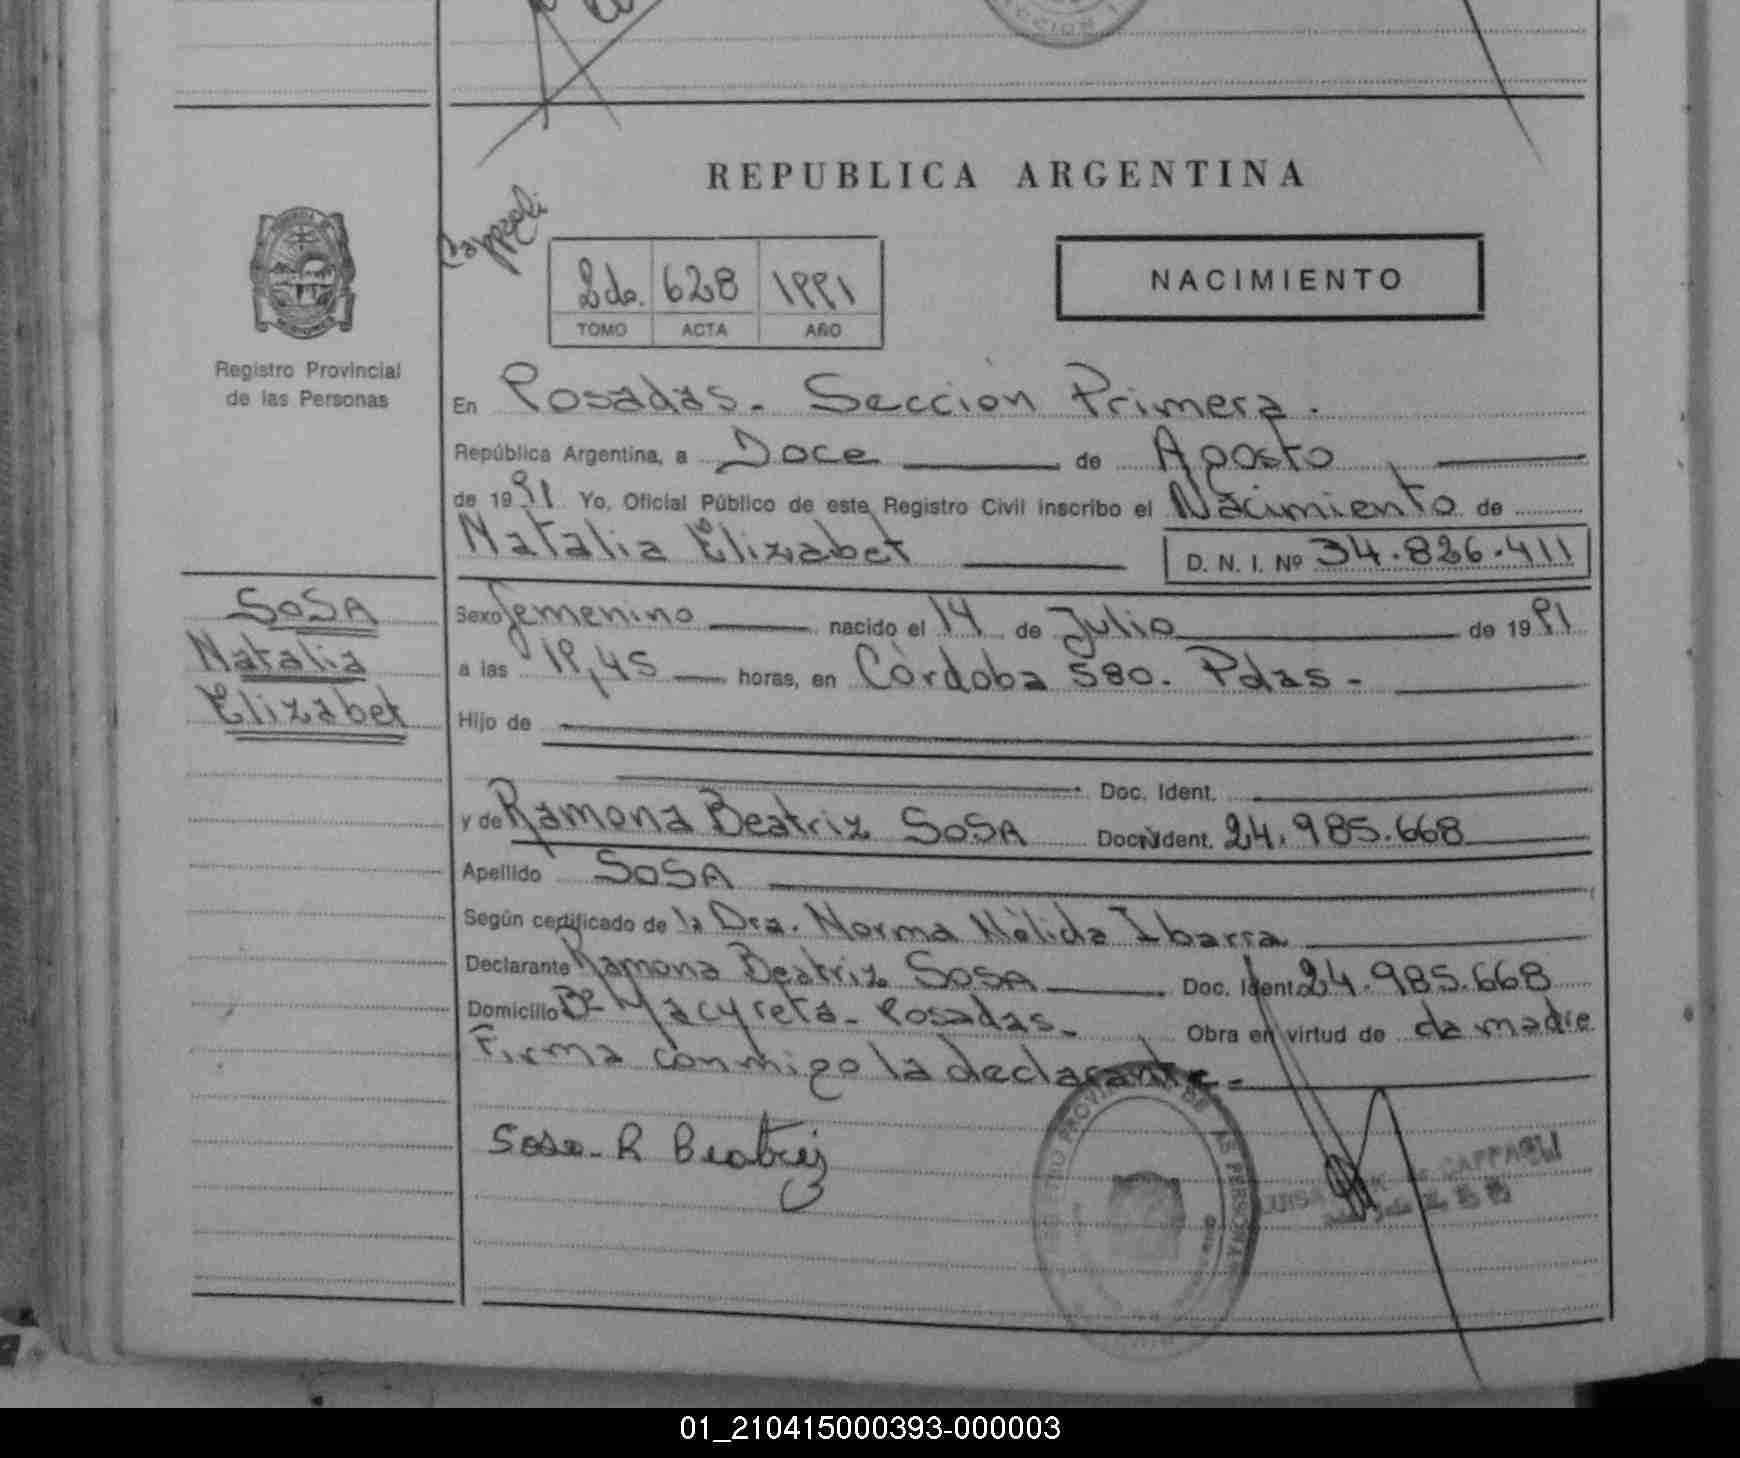 REPUBLICA ARGENTINA
Cappeli
2do. 628 1991
TOMO ACTA AÑO
NACIMIENTO
Registro Provincial
de las Personas
En Posadas. Sección Primera.
República Argentina, a Doce de Agosto
de 1991 Yo, Oficial Público de este Registro Civil inscribo el Nacimiento de
Natalia Elizabet
D. N. I. Nº 34.826.411
SOSA
Natalia
Elizabet
Sexo femenino nacido el 14 de Julio de 1991
a las 19,45 horas, en Córdoba 580. Pdas.-
Hijo de
Doc. Ident.
y de Ramona Beatriz SOSA Doc. Ident. 24.985.668
Apellido SOSA
Según certificado de la Dra. Norma Nélida Ibarra
Declarante Ramona Beatriz SOSA Doc. Ident. 24.985.668
Domicilio Bº Yacyreta - Posadas.- Obra en virtud de da madre
Firma conmigo la declarante.-
Sosa - R Beatriz
REGISTRO PROVINCIAL DE LAS PERSONAS
LUISA
01_210415000393-000003